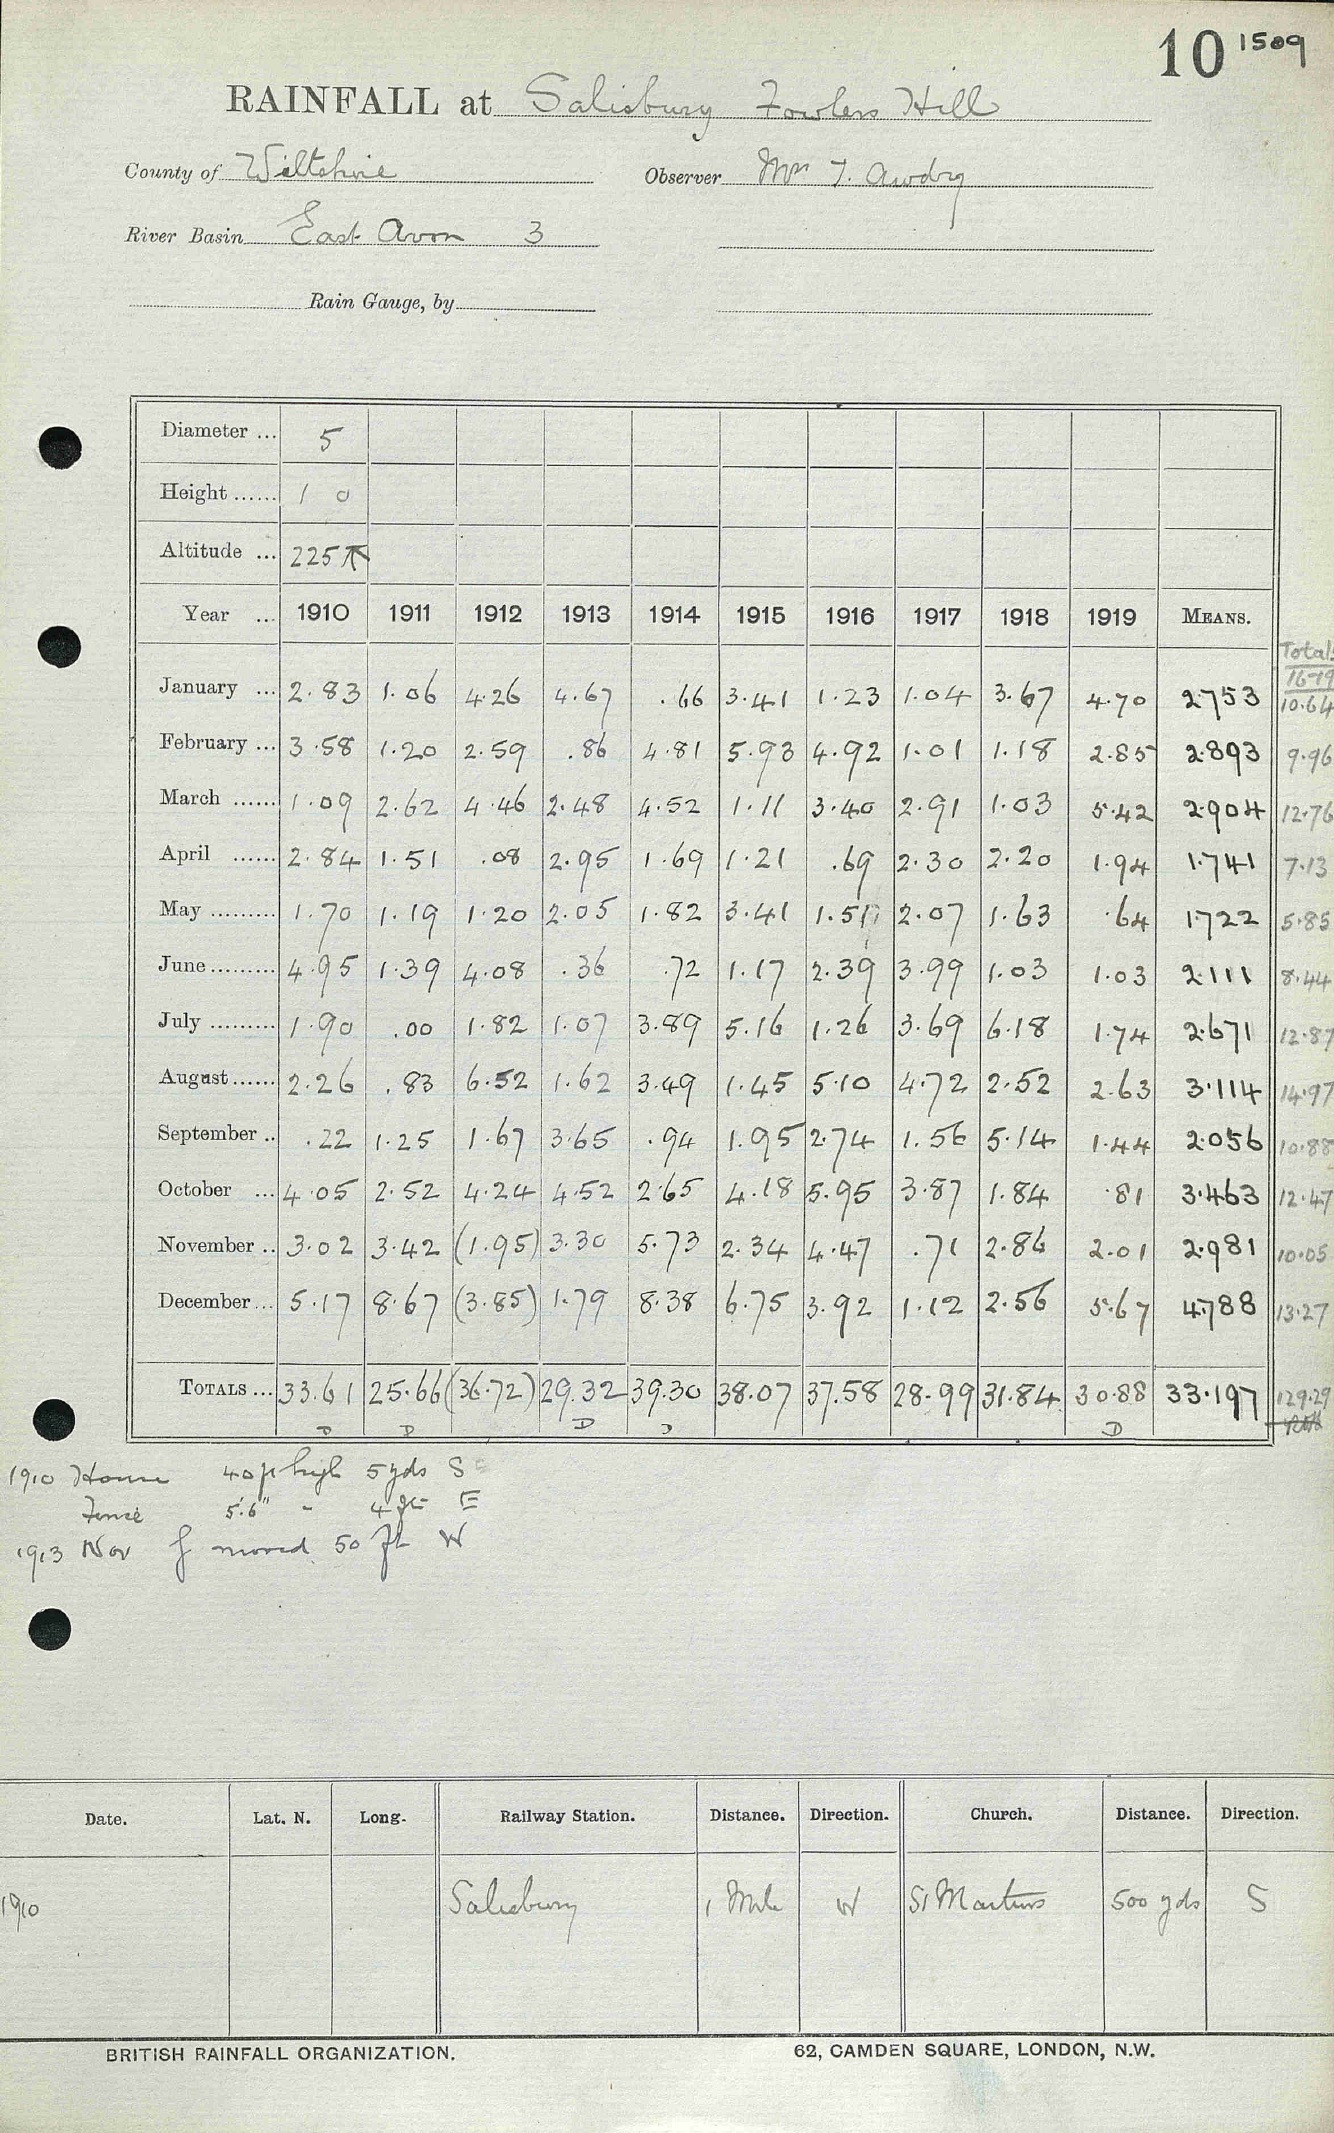 10 1509
RAINFALL at Salisbury Fowlers Hill
County of Wiltshire Observer Mrs T. Awdry
River Basin East Avon 3
Rain Gauge, by
Diameter ... 5
Height ...... 1 0
Altitude ... 225
Year ... 1910 1911 1912 1913 1914 1915 1916 1917 1918 1919 MEANS. Total
16-19
January ... 2.83 1.06 4.26 4.67 .66 3.41 1.23 1.04 3.67 4.70 2.753 10.64
February ... 3.58 1.20 2.59 .86 4.81 5.93 4.92 1.01 1.18 2.85 2.893 9.96
March ...... 1.09 2.62 4.46 2.48 4.52 1.11 3.40 2.91 1.03 5.42 2.904 12.76
April ...... 2.84 1.51 .08 2.95 1.69 1.21 .69 2.30 2.20 1.94 1.741 7.13
May ......... 1.70 1.19 1.20 2.05 1.82 3.41 1.51 2.07 1.63 .64 1.722 5.85
June ......... 4.95 1.39 4.08 .36 .72 1.17 2.39 3.99 1.03 1.03 2.111 8.44
July ......... 1.90 .00 1.82 1.07 3.89 5.16 1.26 3.69 6.18 1.74 2.671 12.87
August ...... 2.26 .83 6.52 1.62 3.49 1.45 5.10 4.72 2.52 2.63 3.114 14.97
September .. .22 1.25 1.67 3.65 .94 1.95 2.74 1.56 5.14 1.44 2.056 10.88
October ... 4.05 2.52 4.24 4.52 2.65 4.18 5.95 3.87 1.84 .81 3.463 12.47
November .. 3.02 3.42 (1.95) 3.30 5.73 2.34 4.47 .71 2.86 2.01 2.981 10.05
December ... 5.17 8.67 (3.85) 1.79 8.38 6.75 3.92 1.12 2.56 5.67 4.788 13.27
TOTALS ... 33.61 25.66 (36.72) 29.32 39.30 38.07 37.58 28.99 31.84 30.88 33.197 129.29
D D D D D
1910 House 40 ft high 5 yds S
Fence 5'.6" " 4 ft E
1913 Nov g moved 50 ft W
Date. Lat. N. Long. Railway Station. Distance. Direction. Church. Distance. Direction.
1910 Salisbury 1 Mile W St Martins 500 yds S
BRITISH RAINFALL ORGANIZATION. 62, CAMDEN SQUARE, LONDON, N.W.